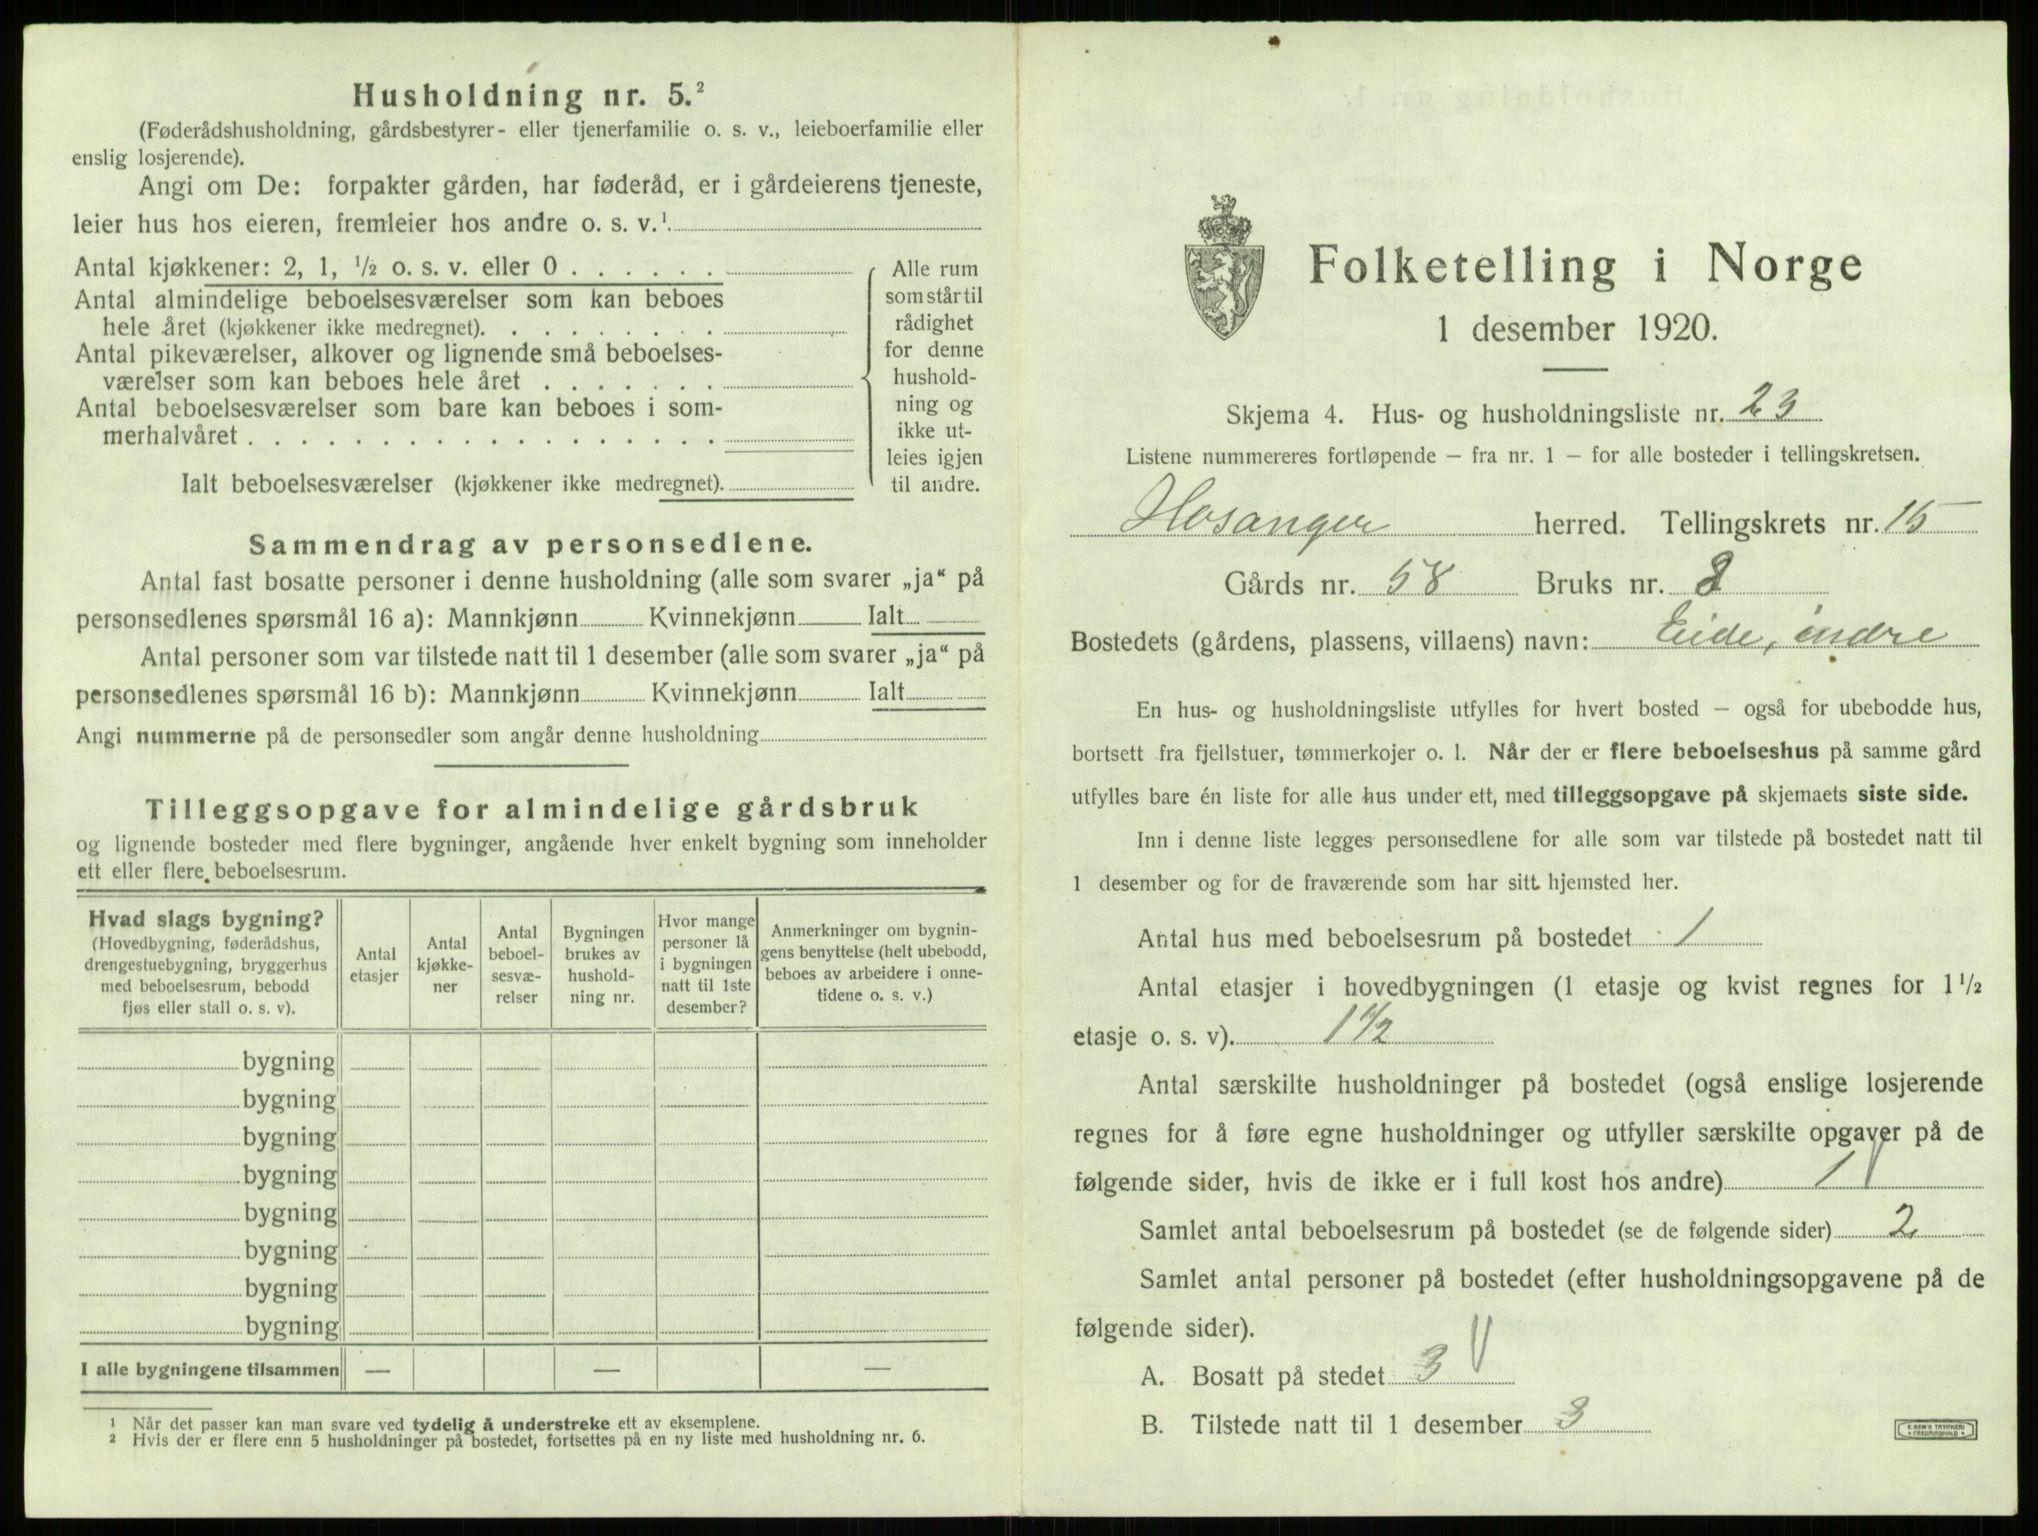 Husholdning nr. 5.²
(Føderådshusholdning, gårdsbestyrer- eller tjenerfamilie o. s. v., leieboerfamilie eller
enslig losjerende).
Angi om De: forpakter gården, har føderåd, er i gårdeierens tjeneste,
leier hus hos eieren, fremleier hos andre o. s. v.¹
Antal kjøkkener: 2, 1, ½ o. s. v. eller 0 . . . . . .
Antal almindelige beboelsesværelser som kan beboes
hele året (kjøkkener ikke medregnet). . . . . . . . .
Antal pikeværelser, alkover og lignende små beboelses-
værelser som kan beboes hele året . . . . . . .
Antal beboelsesværelser som bare kan beboes i som-
merhalvåret . . . . . . . . . . . . . . . . . .
Ialt beboelsesværelser (kjøkkener ikke medregnet).
Alle rum
som står til
rådighet
for denne
hushold-
ning og
ikke ut-
leies igjen
til andre.
Sammendrag av personsedlene.
Antal fast bosatte personer i denne husholdning (alle som svarer „ja“ på
personsedlenes spørsmål 16 a): Mannkjønn Kvinnekjønn Ialt
Antal personer som var tilstede natt til 1 desember (alle som svarer „ja“ på
personsedlenes spørsmål 16 b): Mannkjønn Kvinnekjønn Ialt
Angi nummerne på de personsedler som angår denne husholdning
Tilleggsopgave for almindelige gårdsbruk
og lignende bosteder med flere bygninger, angående hver enkelt bygning som inneholder
ett eller flere beboelsesrum.
Hvad slags bygning?
(Hovedbygning, føderådshus,
drengestuebygning, bryggerhus
med beboelsesrum, bebodd
fjøs eller stall o. s. v).
Antal
etasjer
Antal
kjøkke-
ner
Antal
beboel-
sesvæ-
relser
Bygningen
brukes av
hushold-
ning nr.
Hvor mange
personer lå
i bygningen
natt til 1ste
desember?
Anmerkninger om bygnin-
gens benyttelse (helt ubebodd,
beboes av arbeidere i onne-
tidene o. s. v.)
bygning
bygning
bygning
bygning
bygning
bygning
bygning
bygning
I alle bygningene tilsammen — — —
¹ Når det passer kan man svare ved tydelig å understreke ett av eksemplene.
² Hvis der er flere enn 5 husholdninger på bostedet, fortsettes på en ny liste med husholdning nr. 6.
Folketelling i Norge
1 desember 1920.
Skjema 4. Hus- og husholdningsliste nr. 23
Listene nummereres fortløpende — fra nr. 1 — for alle bosteder i tellingskretsen.
Hosanger herred. Tellingskrets nr. 15
Gårds nr. 58 Bruks nr. 2
Bostedets (gårdens, plassens, villaens) navn: Eide, indre
En hus- og husholdningsliste utfylles for hvert bosted — også for ubebodde hus,
bortsett fra fjellstuer, tømmerkojer o. l. Når der er flere beboelseshus på samme gård
utfylles bare én liste for alle hus under ett, med tilleggsopgave på skjemaets siste side.
Inn i denne liste legges personsedlene for alle som var tilstede på bostedet natt til
1 desember og for de fraværende som har sitt hjemsted her.
Antal hus med beboelsesrum på bostedet 1
Antal etasjer i hovedbygningen (1 etasje og kvist regnes for 1½
etasje o. s. v). 1½
Antal særskilte husholdninger på bostedet (også enslige losjerende
regnes for å føre egne husholdninger og utfyller særskilte opgaver på de
følgende sider, hvis de ikke er i full kost hos andre) 1
Samlet antal beboelsesrum på bostedet (se de følgende sider) 2
Samlet antal personer på bostedet (efter husholdningsopgavene på de
følgende sider).
A. Bosatt på stedet 3
B. Tilstede natt til 1 desember 3